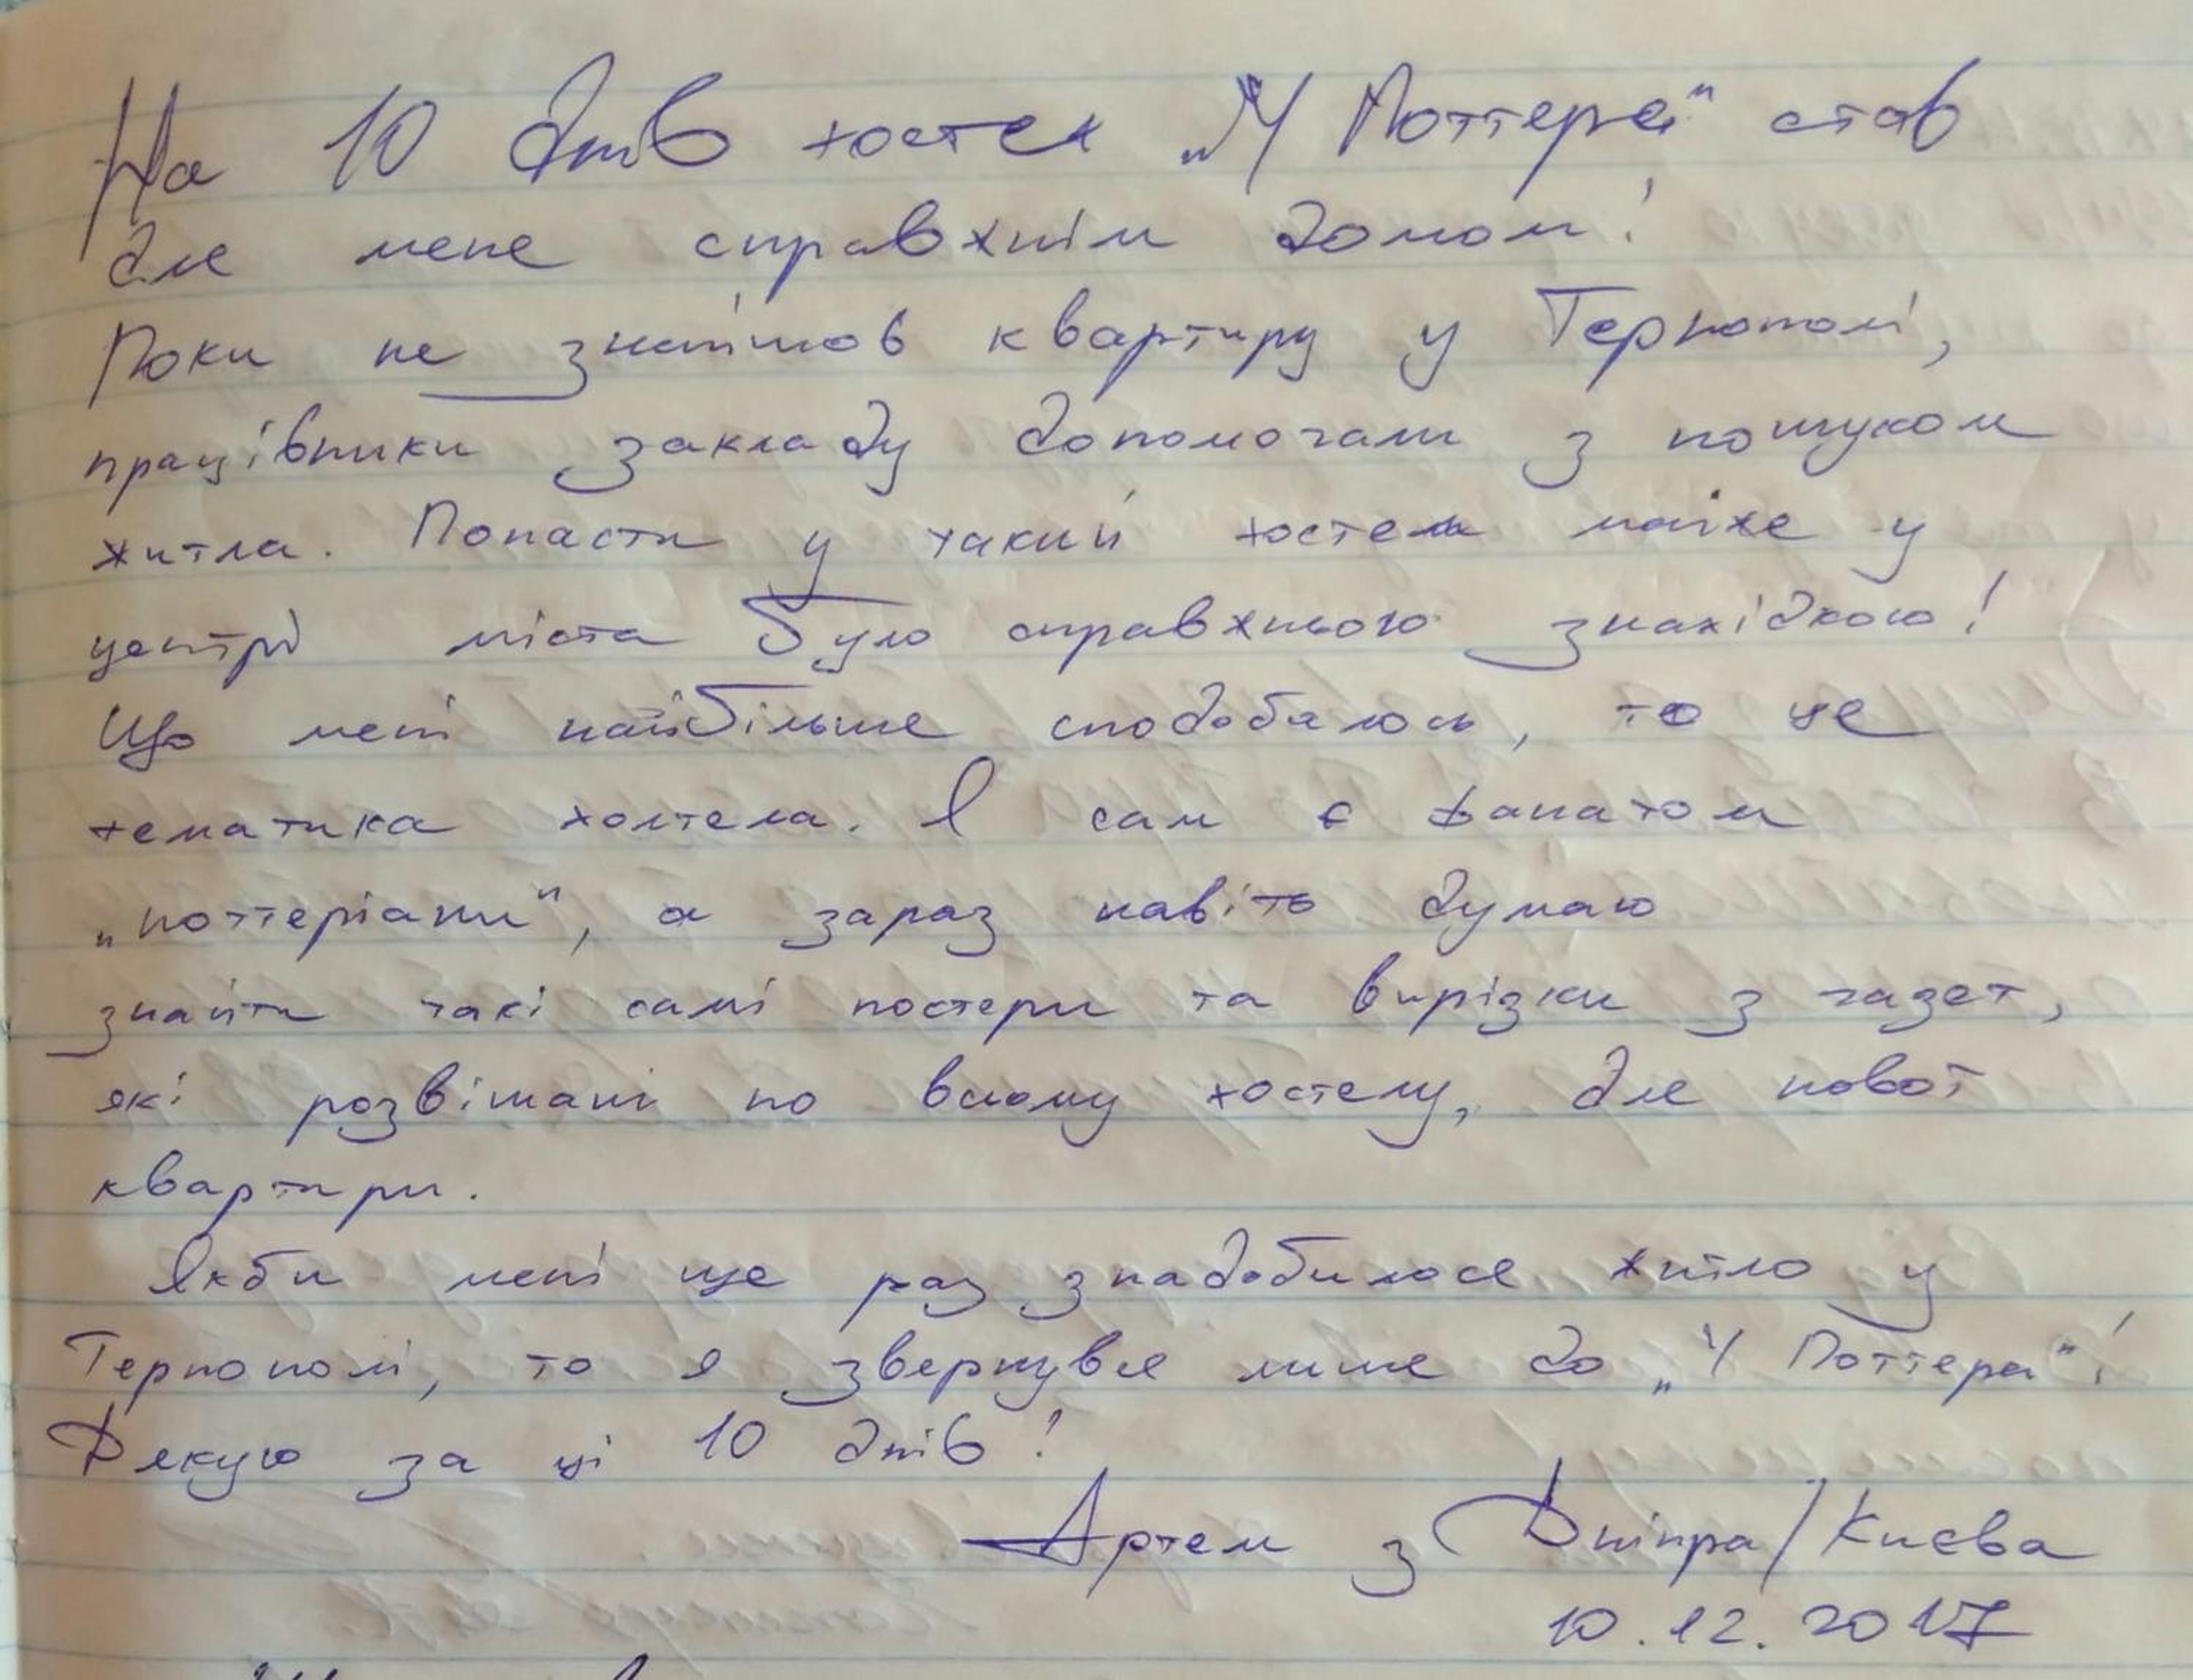 На 10 днів хостел „У Поттера" став
для мене справжнім домом!
Поки не знайшов квартиру у Тернополі,
працівники закладу допомогали з пошуком
житла. Попасти у такий хостел майже у
центрі міста було справжньою знахідкою!
Що мені найбільше сподобалось, то це
тематика хостела. Я сам є фанатом
„поттеріани", а зараз навіть думаю
знайти такі самі постери та вирізки з газет,
які розвішані по всьому хостелу, для нової
квартири.
Якби мені ще раз знадобилося житло у
Тернополі, то я звернувся лише до „У Поттера"!
Дякую за ці 10 днів!
Артем з Дніпра/Києва
10.12.2017